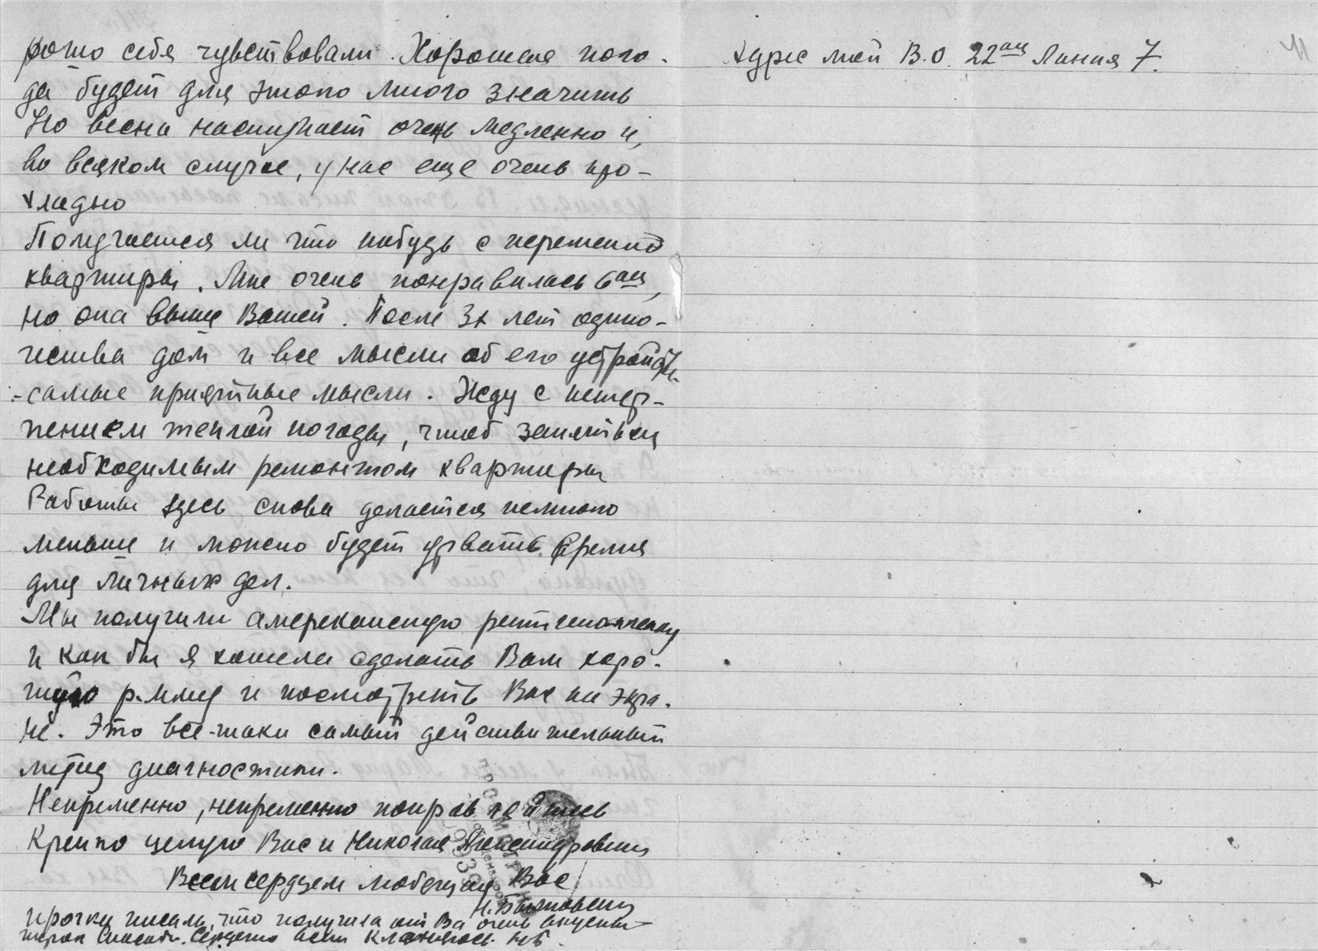 рошо себя чувствовали. Хорошая пого-
да будет для этого много значить
Но весна наступает очень медленно и,
во всяком случае, у нас еще очень про-
хладно
Получается ли что нибудь с переменой
квартиры. Мне очень понравилась 6ая,
но она выше Вашей. После 3х лет одино-
чества дом и все мысли об его устройстве
- самые приятные мысли. Жду с нетер-
пением теплой погоды, чтоб заняться
необходимым ремонтом квартиры
Работы здесь снова делается немного
меньше и можно будет урвать время
для личных дел.
Мы получили американскую рентгено
и как бы я хотела сделать Вам хоро-
шую р-мму и посмотреть Вас на экра-
не. Это все-таки самый действительный
метод диагностики.
Непременно, непременно поправляйтесь
Крепко целую Вас и Николая Александровича
Всем сердцем любящая Вас
писала, что получила от Ва очень
Спасибо. Сердечно всем кланяюсь НБ.
Адрес мой В.О. 22ая Линия 7.
11
ПРОСМОТРЕНО